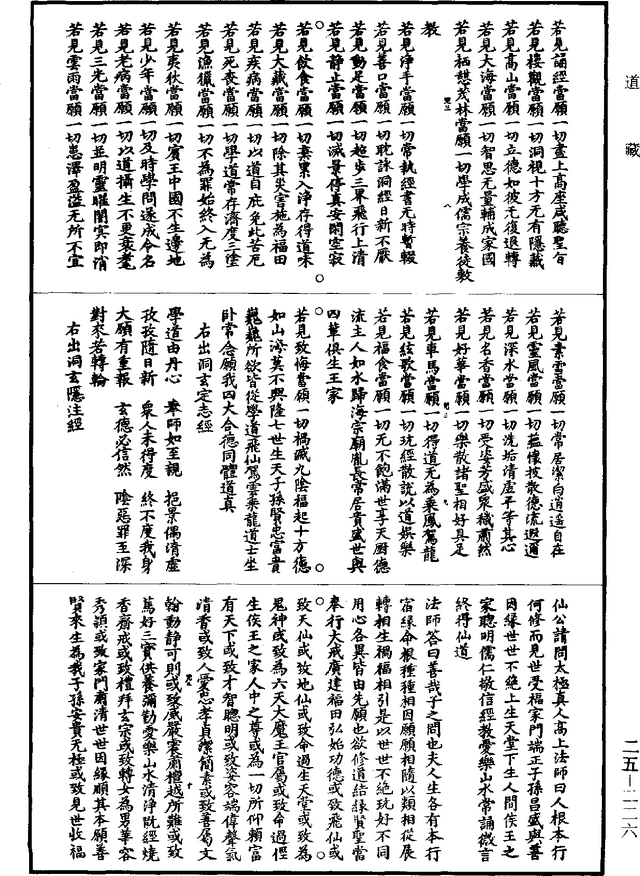 道藏
若見誦經當願一切盡上高座咸聽聖旨
若見樓觀當願一切洞視十方无有隱蔽
若見高山當願一切立德如彼无復退轉
若見大海當願一切智思无量輔成家國
若見栖憇茂林當願一切學成儒宗養徒數
教
若見淨手當願一切常執經書无時暫輟
若見善口當願一切耽詠洞經日新不厭
若見動足當願一切超步三界飛行上清
若見靜止當願一切滅景停真安閑空寂
若見飲食當願一切棄累入淨存得道味
若見大藏當願一切除其災害施為福田
若見疾病當願一切以道自庇免此苦厄
若見死喪當願一切學道常存濟度三塗
若見漁獵當願一切不為罪始終入无為
若見夷狄當願一切賓王中國不生邊地
若見少年當願一切及時學問遂成令名
若見老病當願一切以道攝生不更衰耄
若見三光當願一切並明靈曜闇冥即消
若見雲雨當願一切惠澤盈溢无所不宣
若見素雪當願一切常居潔白逍遥自在
若見靈風當願一切蘊懷披散德流遐通
若見深水當願一切洗垢清虛平等其心
若見名香當願一切受姿芳盛衆穢肅然
若見好華當願一切樂散諸聖相好具足
若見車馬當願一切得道无為乘鳳駕龍
若見絃歌當願一切玩經散說以道娛樂
若見福食當願一切无不飽滿世享天厨德
流主人如水歸海宗廟胤長常居貴盛世與
四輩俱生王家
若見致悔當願一切禍滅九陰福起十方德
如山海莫不興隆七世生天子孫賢忠富貴
巍巍所欲皆從學道飛仙駕雲乘龍道士坐
卧常念願我四大合德同體道真
右出洞玄定志經
學道由丹心 奉師如至親 挹景偶清虛
孜孜隨日新 衆人未得度 終不度我身
大願有重報 玄德必信然 陰惡罪至深
對來若轉輪
右出洞玄隱注經
仙公請問太極真人高上法師曰人根本行
何修而見世受福家門端正子孫昌盛與善
因緣世世不絶上生天堂下生人間侯王之
家聰明儒仁敬信經教愛樂山水常誦微言
終得仙道
法師答曰善哉子之問也夫人生各有本行
富緣命根種種相因願願相隨以類相從展
轉相生禍福相引是以世世不絶玩好不同
用心各異皆由先願也欲修道結緣賢聖當
奉行大戒廣建福田弘始功德或致飛仙或
致天仙或致地仙或致命過生天堂或致為
鬼神或致為六天大魔王官屬或致命過俓
生侯王之家人中之尊或為一切所仰賴富
有天下或致才智聰明或致姿容端偉聲氣
清香或致人愛忠孝貞潔簡素或致善屬文
翰動静可則或致威嚴震肅檀越所難或致
篤好三寶供養彌勸愛樂山水清淨翫經燒
香齋戒或致禮拜玄宗或致轉女為男華容
秀穎或致家門肅清世世因緣順其本願善
賢來生為我子孫安貴无極或致見世收福
二五—二二六